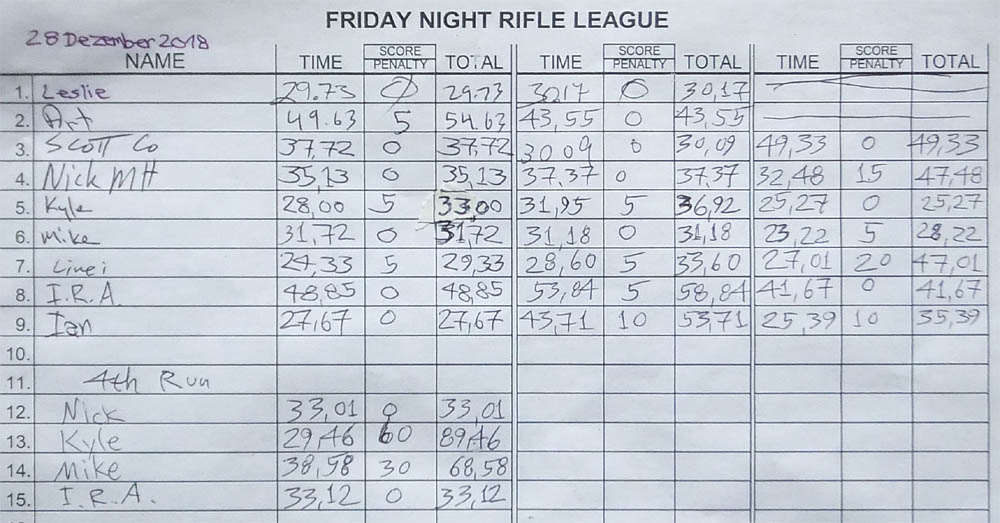 FRIDAY NIGHT RIFLE LEAGUE
28 Dezember 2018
NAME TIME SCORE PENALTY TOTAL TIME SCORE PENALTY TOTAL TIME SCORE PENALTY TOTAL
1. Leslie 29.73 0 29.73 30,17 0 30,17
2. Art 49.63 5 54.63 43,55 0 43,55
3. Scott Co 37,72 0 37,72 30,09 0 30,09 49,33 0 49,33
4. Nick MH 35,13 0 35,13 37,37 0 37,37 32,48 15 47,48
5. Kyle 28,00 5 33,00 31,95 5 36,92 25,27 0 25,27
6. Mike 31,72 0 31,72 31,18 0 31,18 23,22 5 28,22
7. 24,33 5 29,33 28,60 5 33,60 27,01 20 47,01
8. I.R.A. 48,85 0 48,85 53,84 5 58,84 41,67 0 41,67
9. Ian 27,67 0 27,67 43,71 10 53,71 25,39 10 35,39
10.
11. 4th Run
12. Nick 33,01 0 33,01
13. Kyle 29,46 60 89,46
14. Mike 38,58 30 68,58
15. I.R.A. 33,12 0 33,12